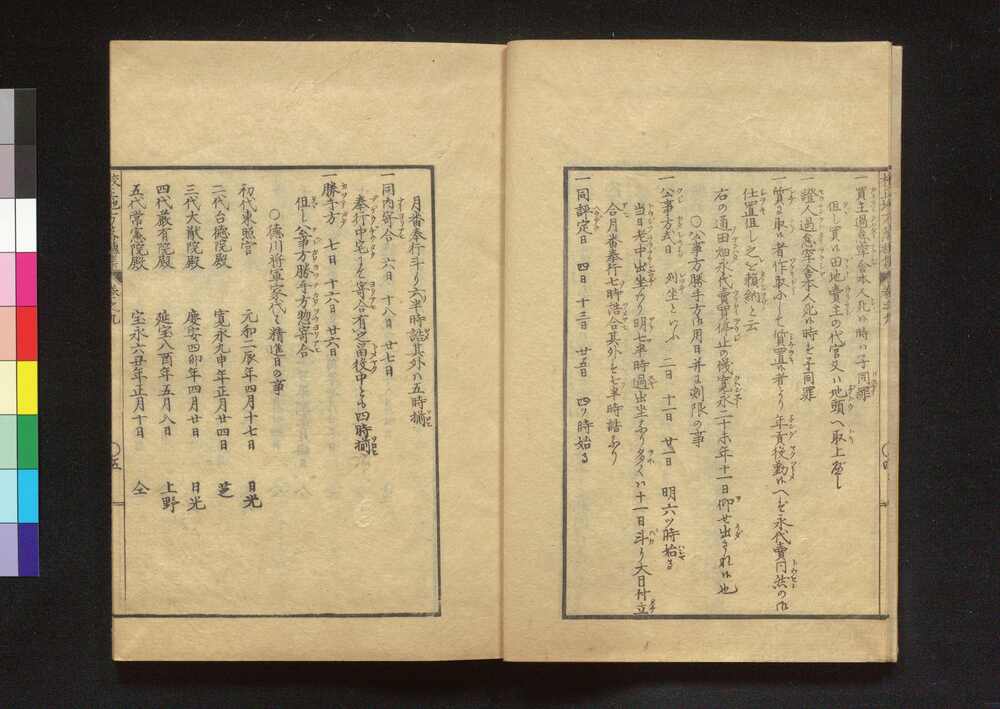 一買主過怠牢舎本人死ル時ハ子同罪
但し買ハ田地賣主の代官又ハ地頭へ取上虗し
一證人過怠牢舎本人死ル時ハ子同罪
一質ニ取ル者作取ニして質置ル者より年貢役勤ルヘハ永代賣同然の
仕置但し之を頼納と云
右の通田畑永代賣買停止の儀寛永二十未年十一日仰せ出され也
〇公事方勝手方御用日并ニ刻限の事
一公事方式日列坐といふ二日十一日廿一日明六ッ時始る
当日老中出坐あり明七半時過出坐あり多くハ十一日斗り大目付立
合月番奉行七時詰合其外ハ七半時詰あり
一同評定日四日十三日廿五日四ッ時始る
月番奉行斗り六半時詰其外ハ五時揃
一同内寄合六日十八日廿七日
奉行中宅ニて寄合有之畄役中とも四時揃
一勝手方七日十六日廿六日
但し公事方勝手方惣寄合
〇徳川将軍家代々精進日の事
初代東照宮元和二辰年四月十七日日光
二代台徳院殿寛永九申年正月廿四日芝
三代大猷院殿慶安四卯年四月廿日日光
四代嚴有院殿延宝八酉年五月八日上野
五代常憲院殿宝永六丑年正月十日仝
〇五